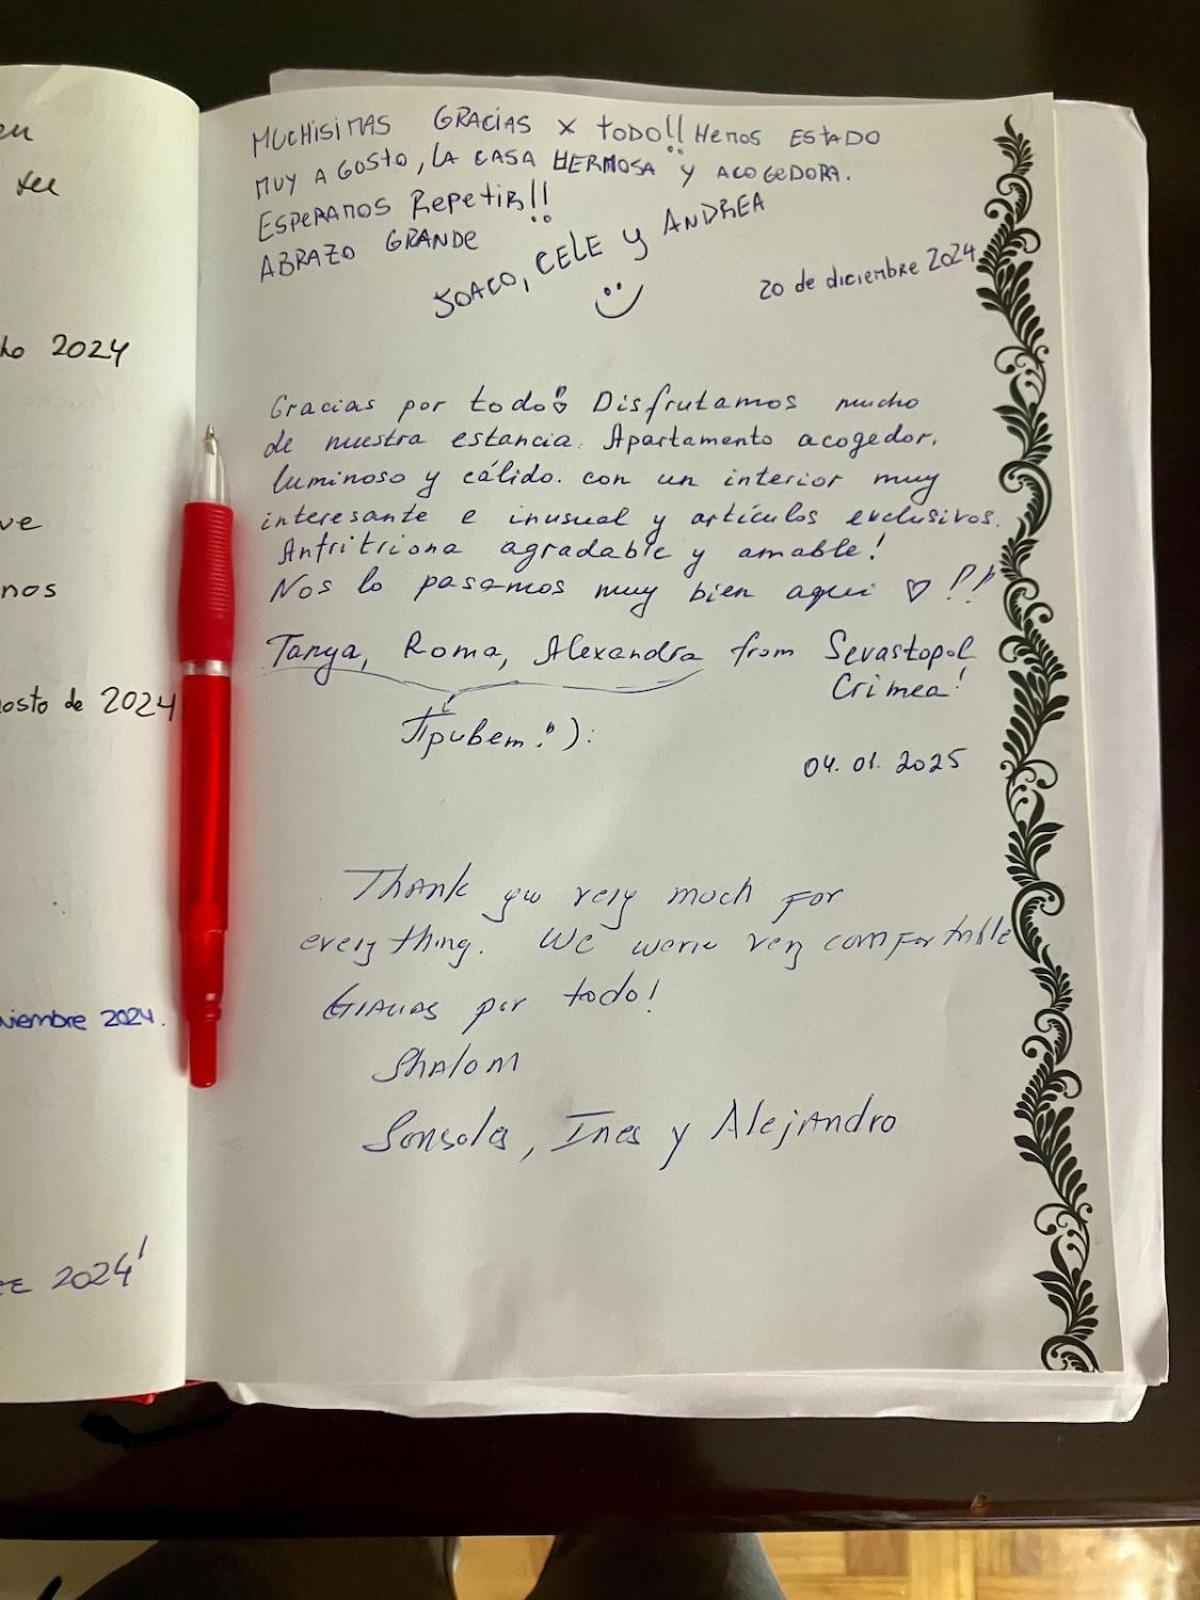 en
su
ho 2024
ve
nos
osto de 2024
viembre 2024.
RE 2024!
MUCHISIMAS GRACIAS X TODO!! HEMOS ESTADO
MUY A GOSTO, LA CASA HERMOSA Y ACOGEDORA.
ESPERAMOS REPETIR!!
ABRAZO GRANDE
JOACO, CELE Y ANDREA
20 de diciembre 2024
Gracias por todo! Disfrutamos mucho
de nuestra estancia. Apartamento acogedor,
luminoso y cálido. con un interior muy
interesante e inusual y artículos exclusivos.
Anfritriona agradable y amable!
Nos lo pasamos muy bien aqui ♡!!
Tanya, Roma, Alexandra from Sevastopol
Crimea!
Привет!):
04.01.2025
Thank you very much for
everything. We were very comfortable
Gracias por todo!
Shalom
Sonsoles, Ines y Alejandro